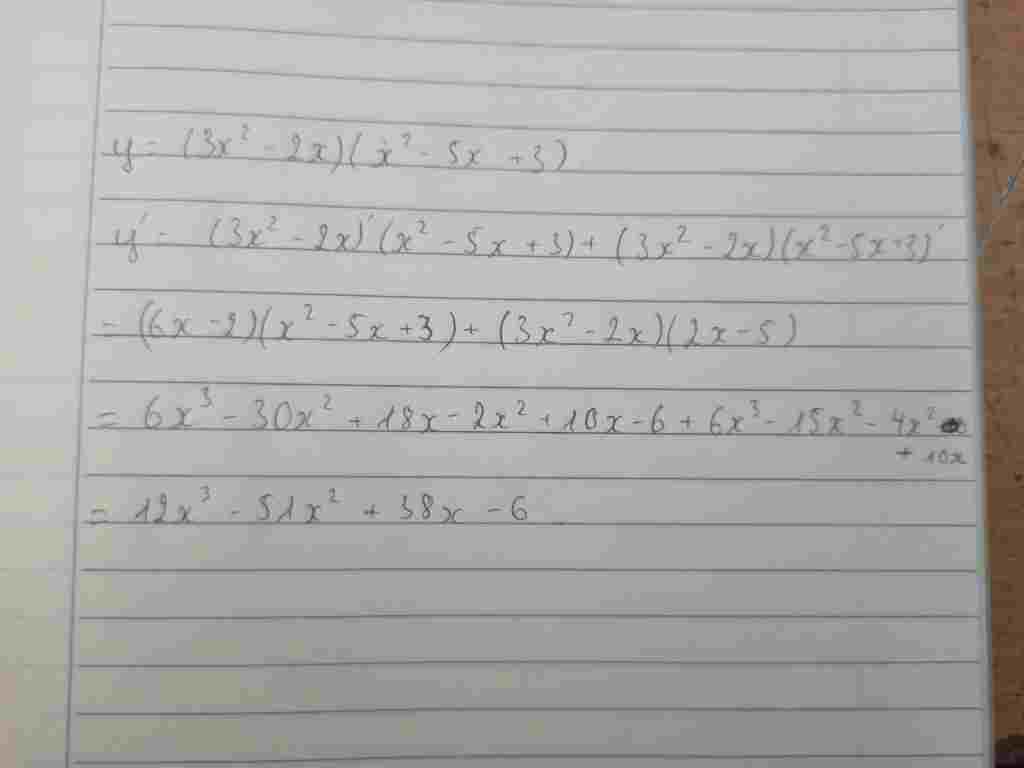 y = (3x² - 2x)(x² - 5x + 3)
y' = (3x² - 2x)'(x² - 5x + 3) + (3x² - 2x)(x² - 5x + 3)'
= (6x - 2)(x² - 5x + 3) + (3x² - 2x)(2x - 5)
= 6x³ - 30x² + 18x - 2x² + 10x - 6 + 6x³ - 15x² - 4x²
+ 10x
= 12x³ - 51x² + 38x - 6